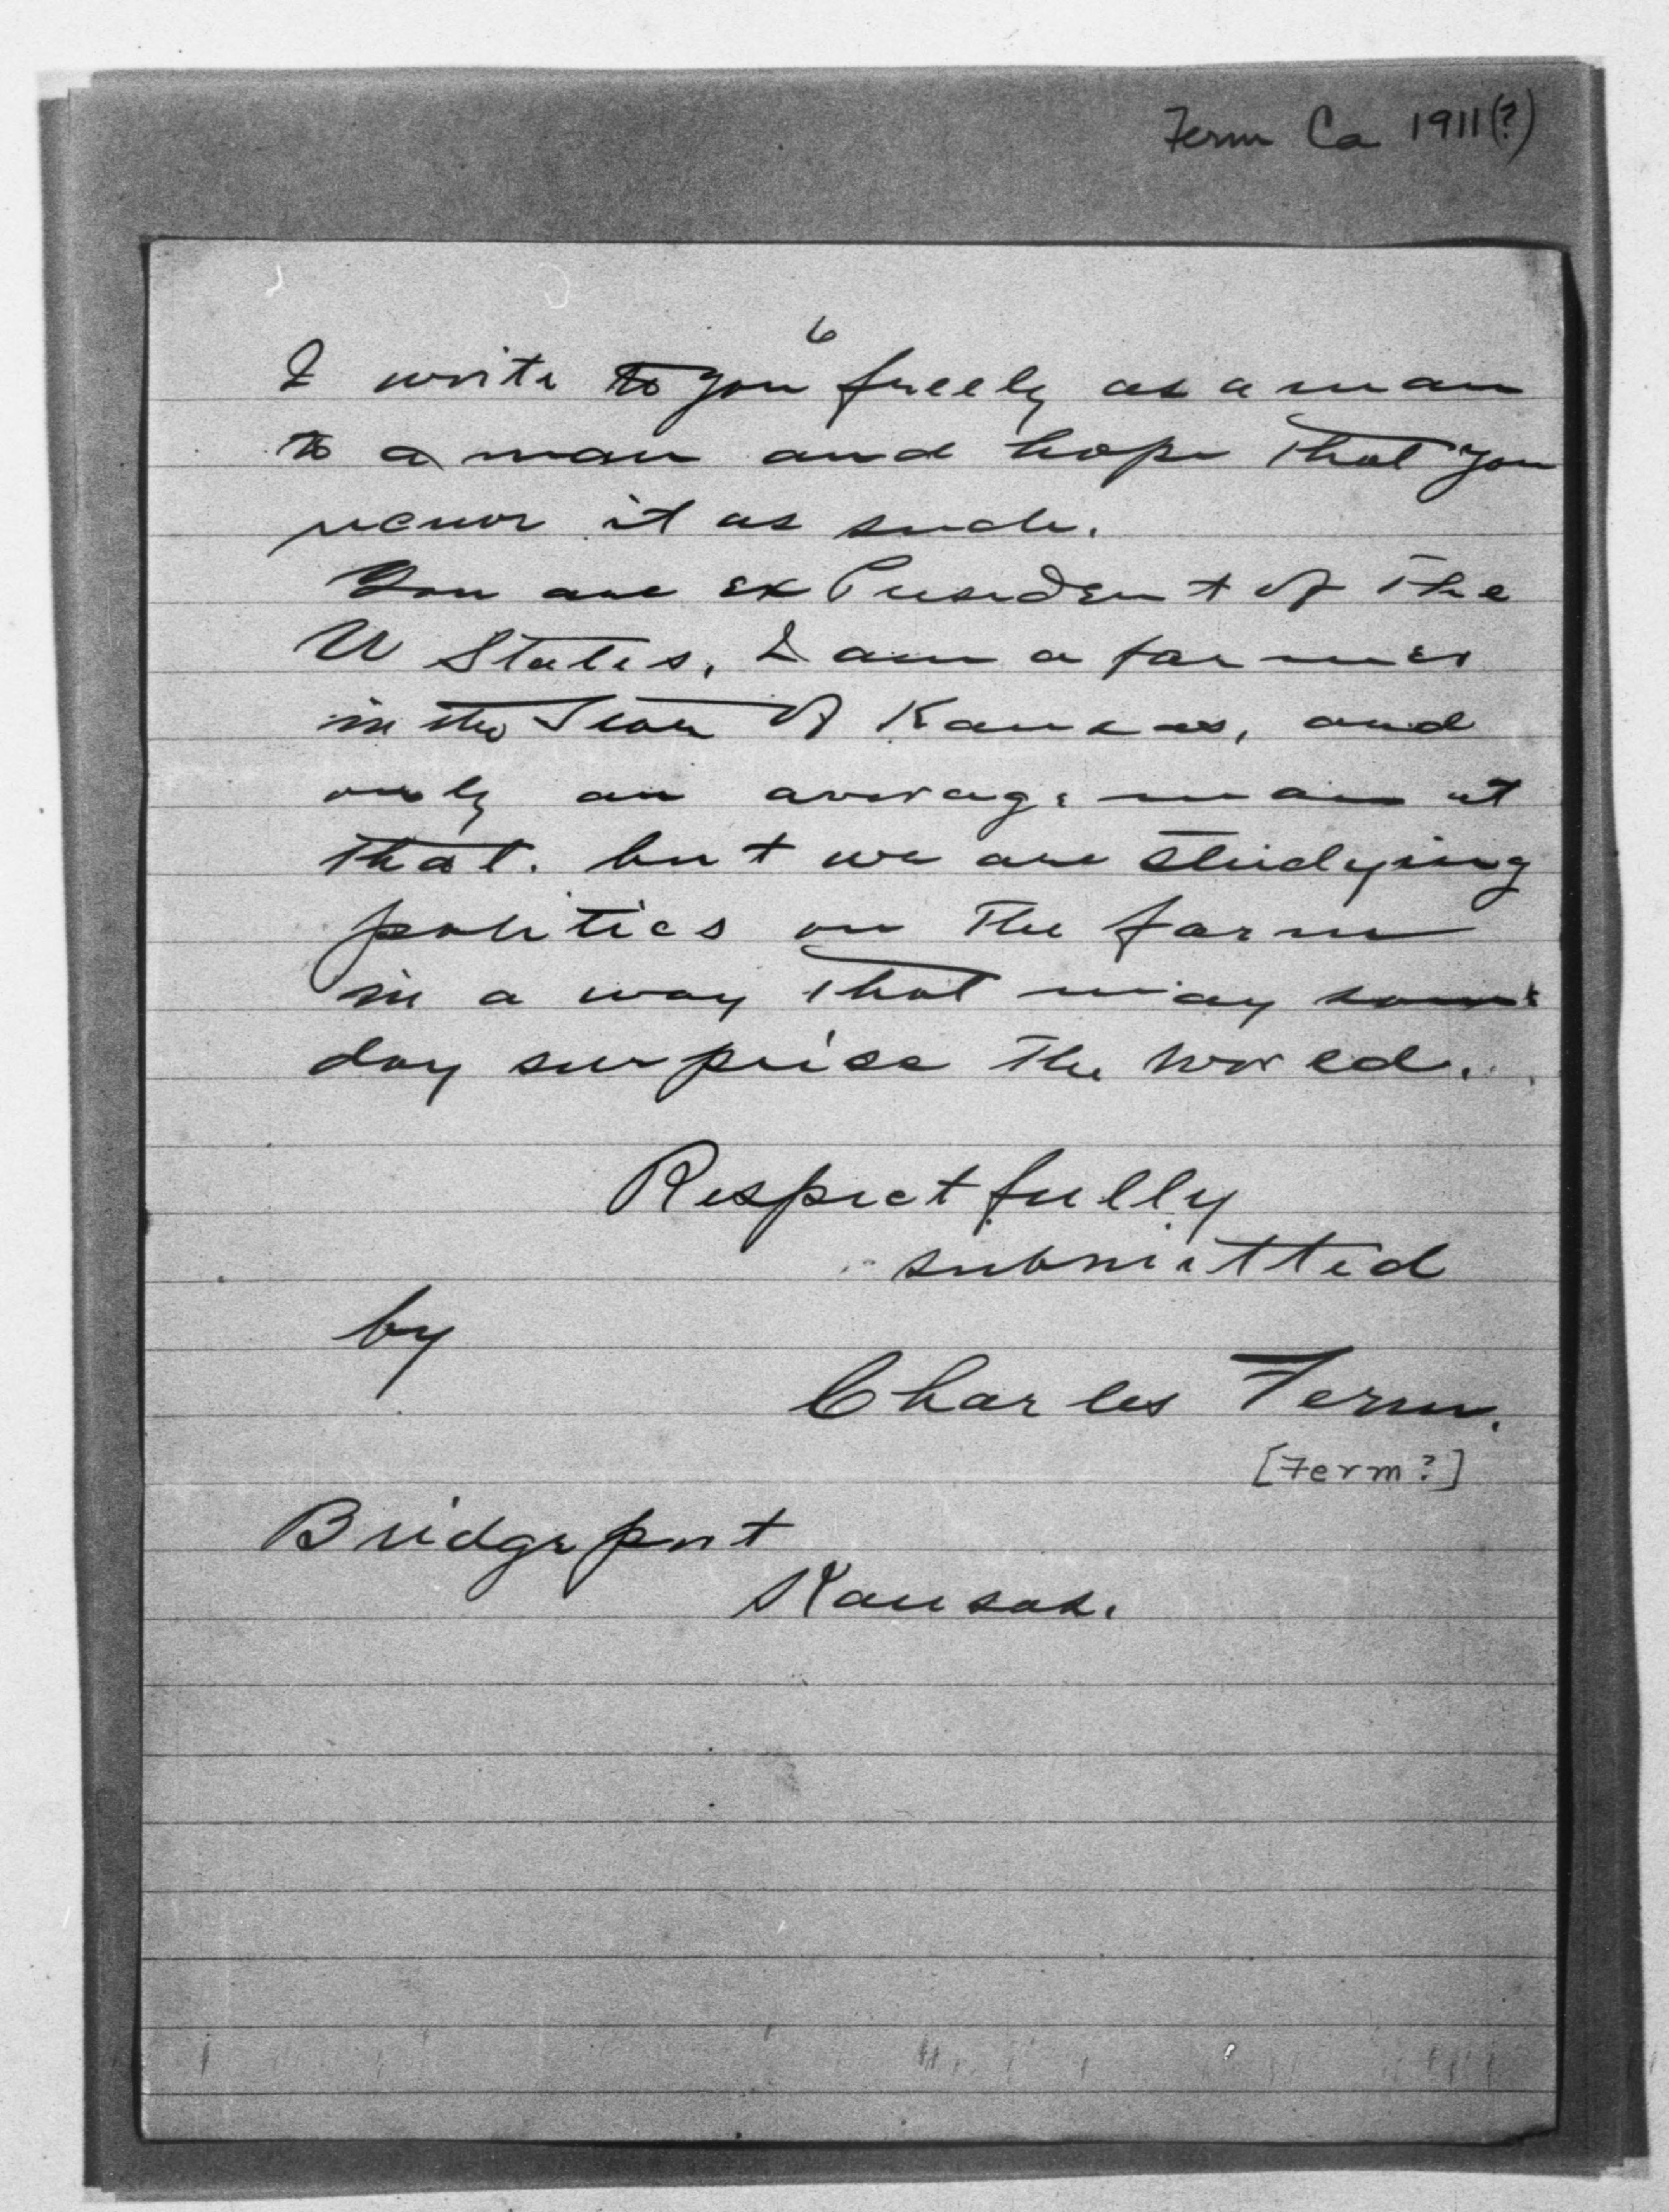 Ferm Ca 1911(?)
6
I write to you freely as a man
to a man and hope that you
it as such.
You are ex President of the
U States, I am a farmer
in the of Kansas, and
only an average man at
that. but we are studying
politics on the farm
in a way that may some
day surprise the world.
Respectfully
submitted
by
Charles Ferm.
[Ferm?]
Bridgeport
Kansas.